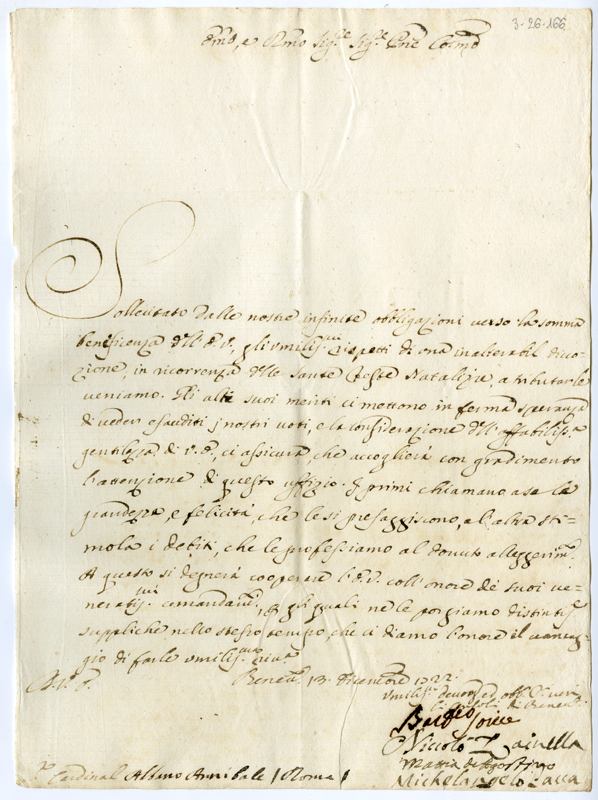 3-26-166
Sig.re Sig.re
Sollecitato dalle nostre infinite obbligazioni verso la somma
beneficenza dell' E. V., gli umiliss.mi rispetti di una inalterabil divo-
zione, in ricorrenza delle Sante Feste Natalizie, a tributarle
veniamo. Gli alti suoi meriti ci mettono in ferma speranza
di veder esauditi i nostri voti, e la considerazione dell' affabiliss.a
gentilezza di V. E., ci assicura che accoglierà con gradimento
l'attenzione di questo uffizio. I primi chiamano a se la
grandezza, e felicità, che le si presaggiscono, e l'altra sti-
mola i debiti, che le professiamo al dovuto allegerim.to
A questo si degnerà cooperare l'E. V. coll' onore de' suoi ve-
neratis.mi comandam.ti, gli quali ne le porgiamo distinte
suppliche nello stesso tempo, che ci diamo l'onore il vantag-
gio di farle umilis.ma river.a
13. Dicembre 1722.
umilis.mi devot.mi ed obb.
Niccolò
Mattia de Agostino
Michelangelo Zacca
Cardinal Albano Annibale / Roma /